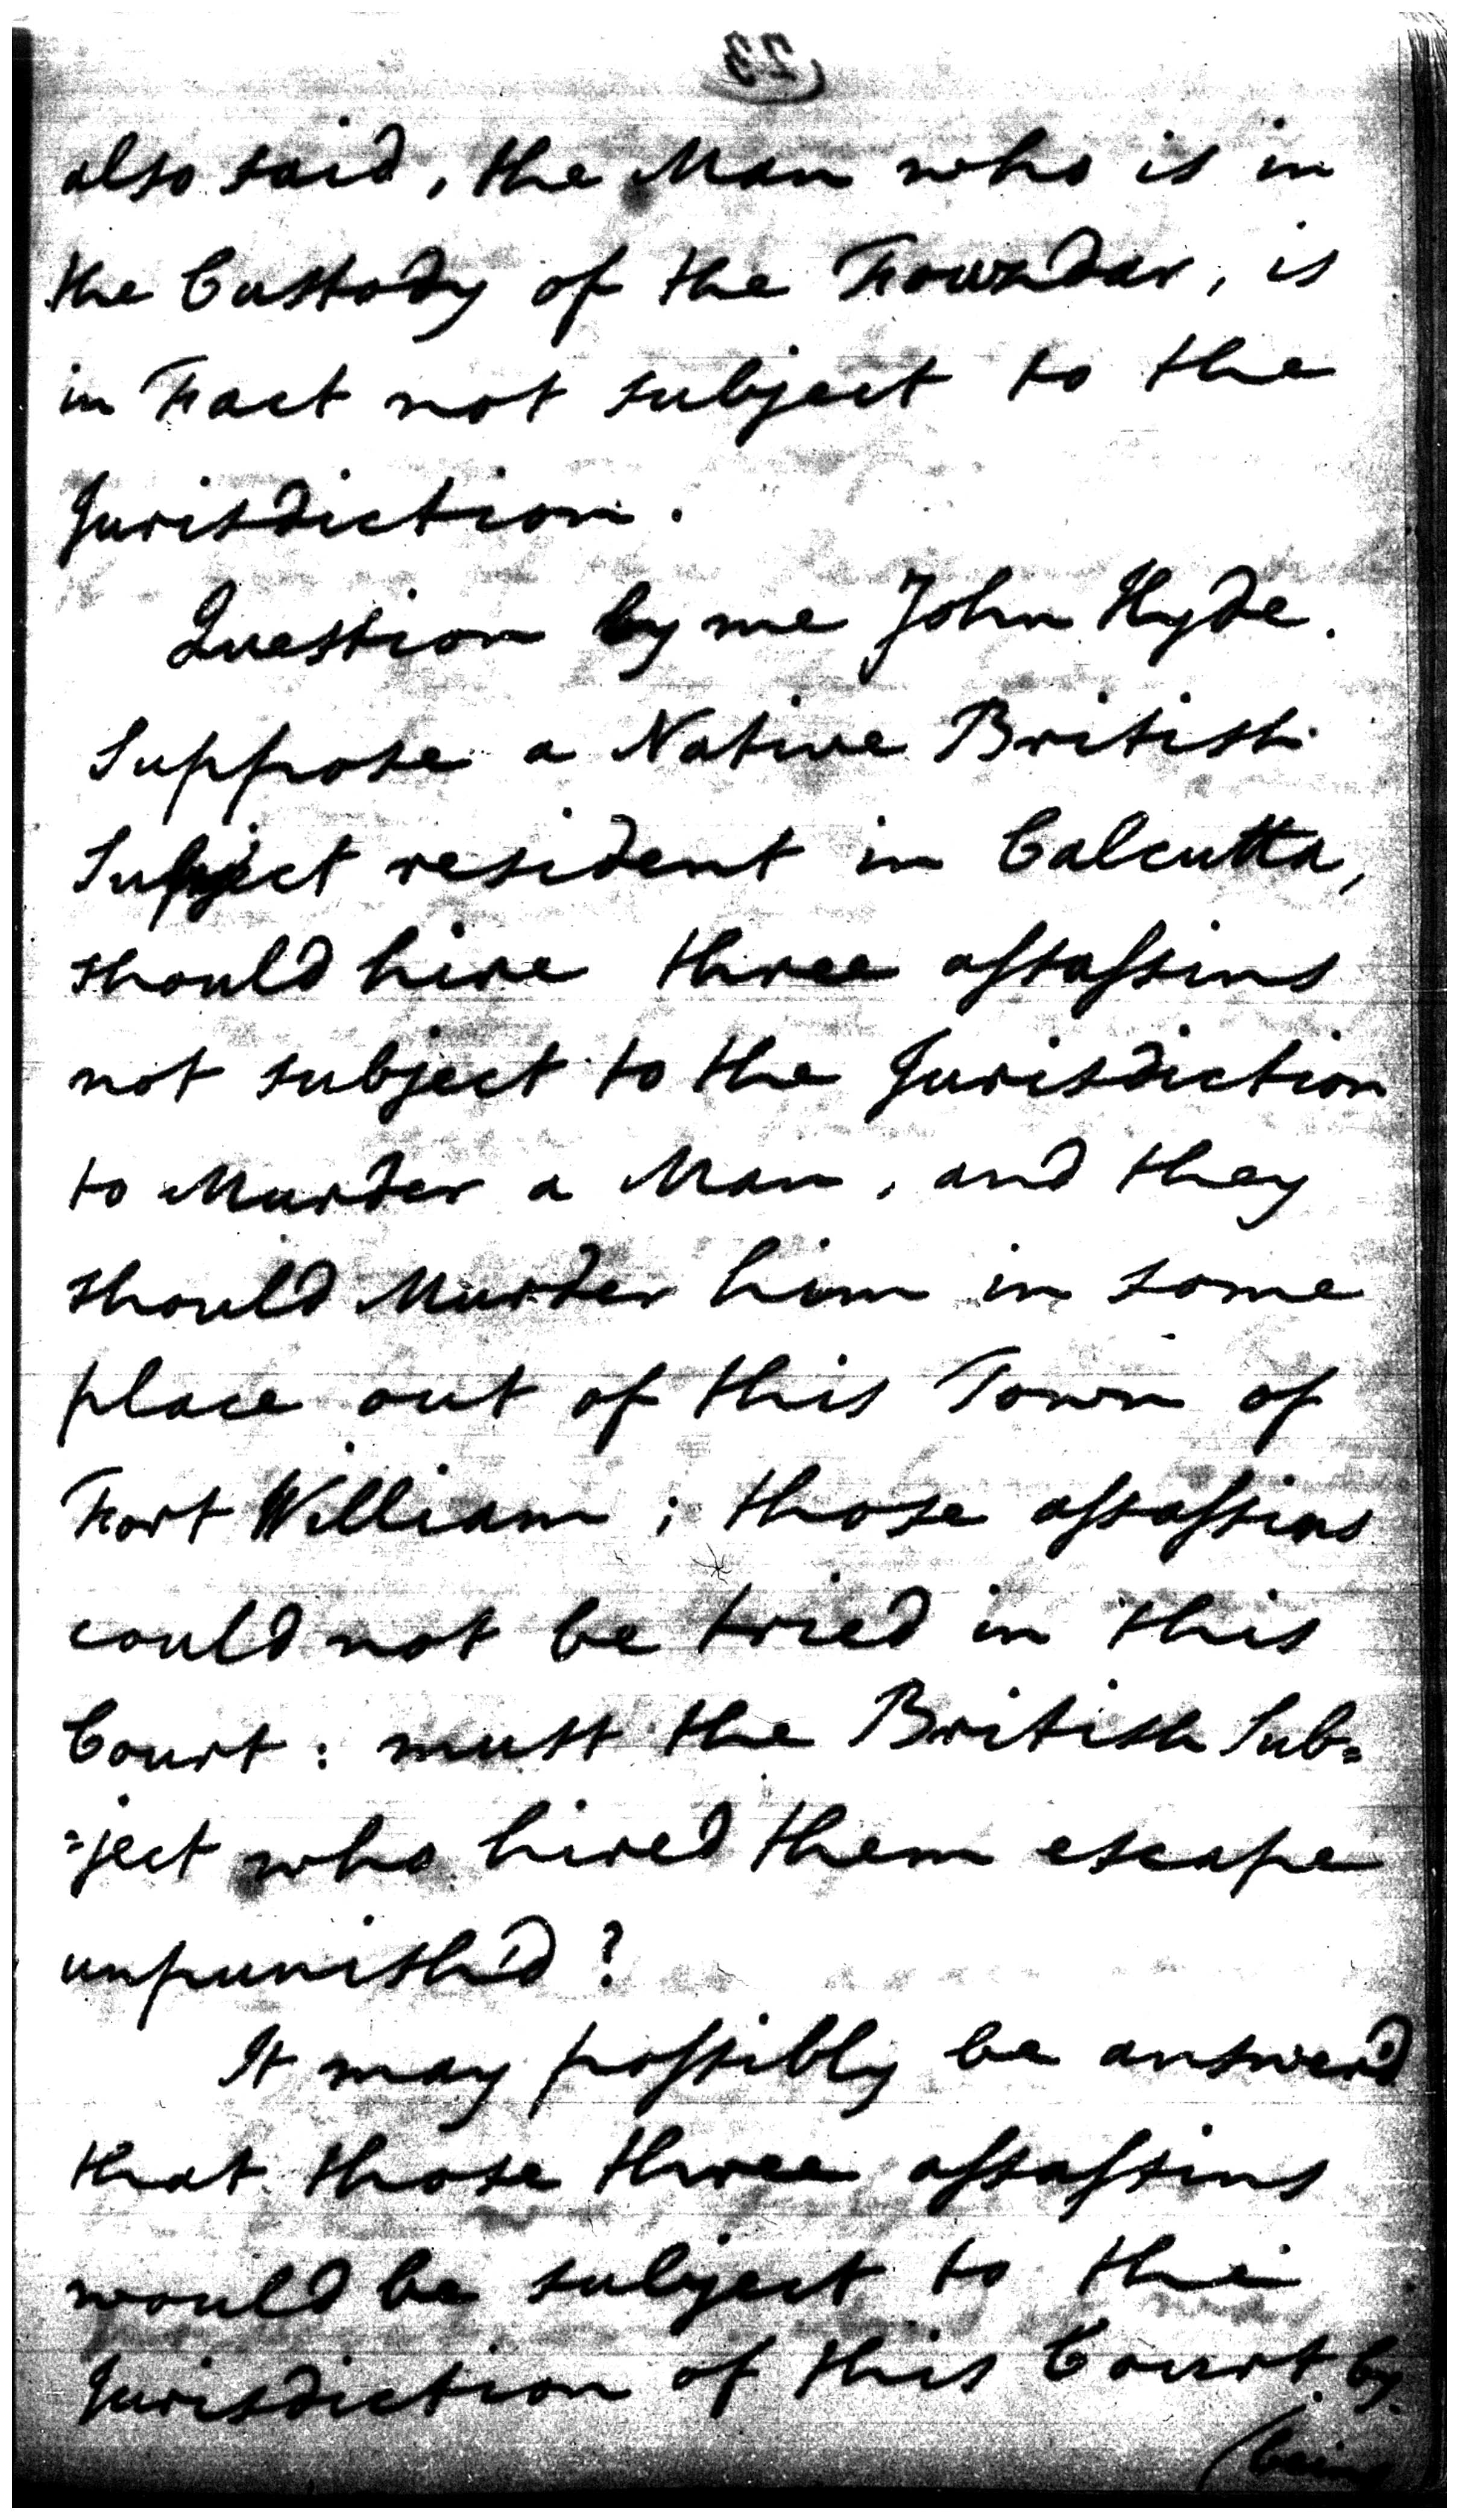 also said, the Man who is in
the Custody of the Fowzdar, is
in Fact not subject to the
Jurisdiction.
Question by me John Hyde.
Suppose a Native British
Subject resident in Calcutta,
should hire three assassins
not subject to the Jurisdiction
to Murder a Man, and they
should Murder him in some
place out of this Town of
Fort William; those assassins
could not be tried in this
Court: must the British Sub=
=ject who hired them escape
unpunish'd?
It may possibly be answer'd
that those three assassins
would be subject to the
Jurisdiction of this Court by
(being